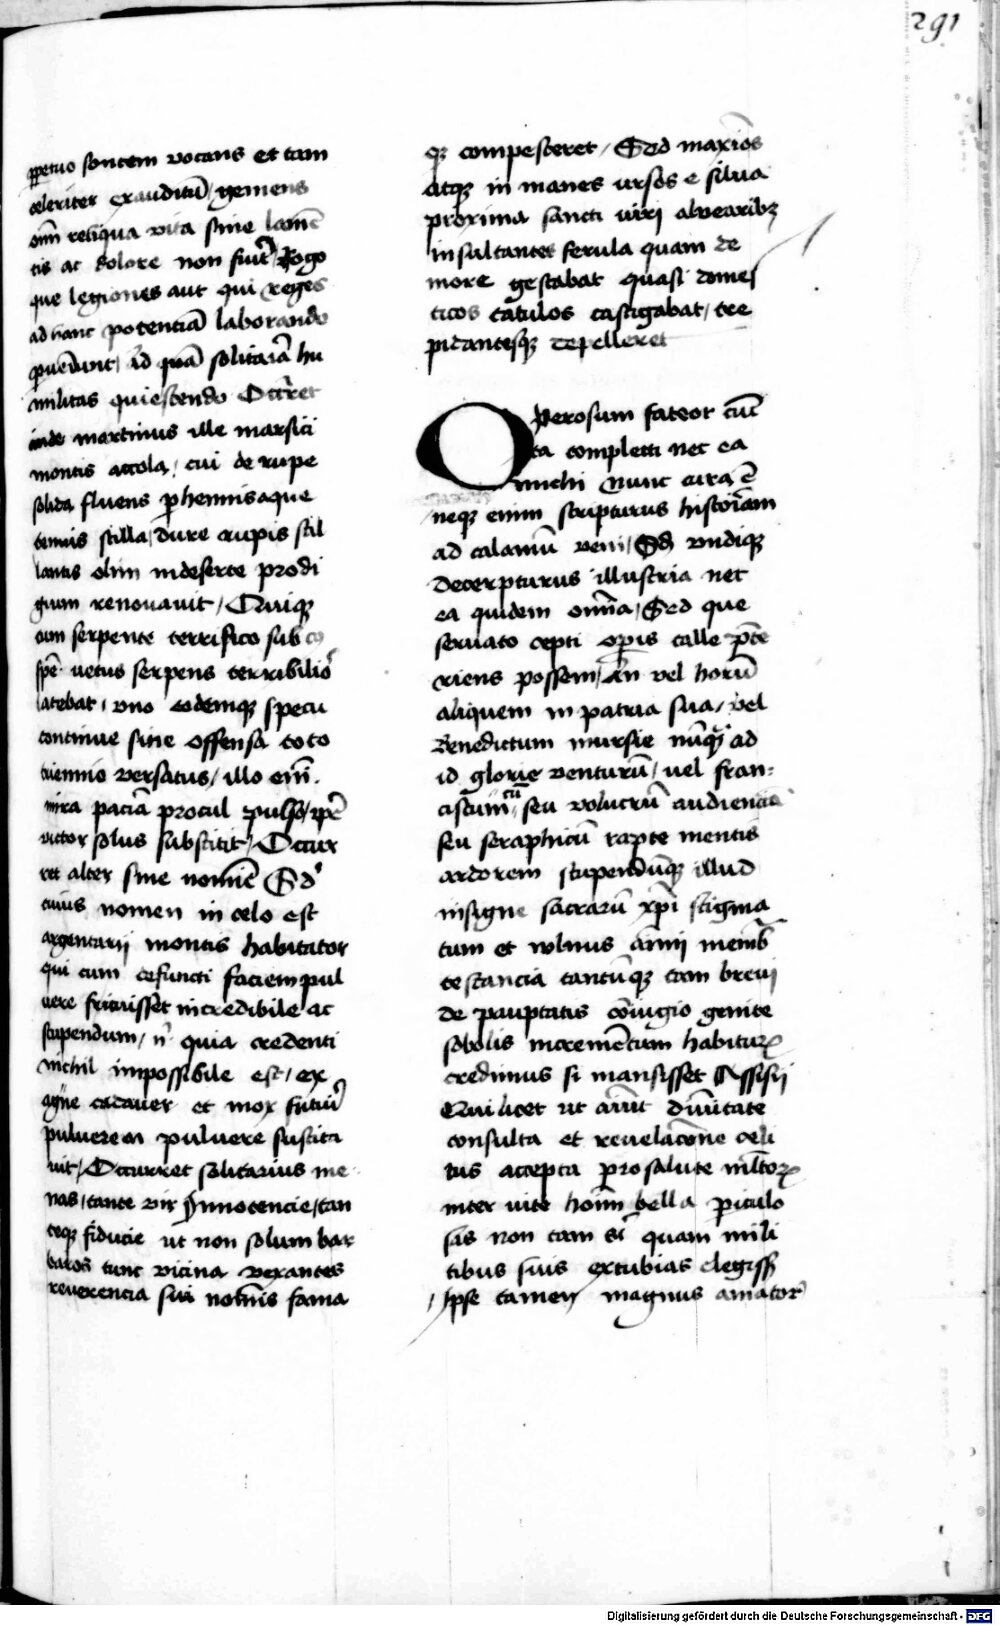 291
ꝑpetuo sontem vocans et tam
celeriter exauditū / gemens
om̄ reliqua vita sine lamē
tis ac dolore non fuit̄ / Rogo
que legiones aut qui reges
ad hanc potenciā laborando
ꝑuenērunt / ad quā solitariā hu
militas quiescendo Occurret
inde martinus ille marsici
montis accola / cui de rupe
solida fluens ꝑhemnisaque
tenuis stilla / dure rupis stil
lantis olim in deserto prodi
gium renouauit / Cuiqꝫ
cum serpente terrifico sub
spē vetus serpens terribilior
latebat / vno eodemqꝫ specu
continue sine offensa toto
triennio versatus / illo em̄
mira paciā procul pulso / ip̄e
victor solus substitit / Occur
ret alter sine nomīe Sꝫ
cuius nomen in celo est
argentarij montis habitator
qui cum defuncti faciem pul
uere fricuisset incredibile ac
stupendum / n̄ quia credenti
nichil impossibile est / ex
igue cadauer et mox futur̄
puluerem puluere suscita
uit / Occurret solitarius me
nas / tante vir Innocencie / tan
teqꝫ fiducie ut non solum bar
baros tunc vicina vexantes
reuerencia sui noīnis fama
qꝫ compesceret / Sed maxīos
atqꝫ in manes ursos e silua
proxima sancti viri aluearibꝫ
insultantes ferula quam de
more gestabat quasi domes
ticos catulos castigabat / tre
pidantesqꝫ repelleret
Operosum fateor cūc
ta complecti nec ea
michi nunc cura ē
neqꝫ enim scripturus historiam
ad calamū veni / Sꝫ vndiqꝫ
decerpturus illustria nec
ea quidem om̄ia / Sed que
seruato cepti oꝑis calle p̄te
riens possem / An vel horū
aliquem in patria sua / vel
Benedictum nursie nūqꝫ ad
id glorie venturū / vel fran
ciscum cū / seu volucrū audiencia
seu seraphicū rapte mentis
ardorem stupendūqꝫ illud
insigne sacrarū xp̄i stigma
tum et volnus animi memb̄
testancia tantūqꝫ tam breui
de pauptatis cōiugio genite
sobolis incremētum habiturꝝ
credimus si mansisset Assisij
Cui licet ut aiūt diuītate
consulta et reuelacōne celi
tus accepta pro salute ml̄torꝝ
inter vite hoīm bella ꝑiculo
sas non tam si quam mili
tibus suis excubias elegiss
Ipse tamen magnus amator
Digitalisierung gefördert durch die Deutsche Forschungsgemeinschaft - DFG